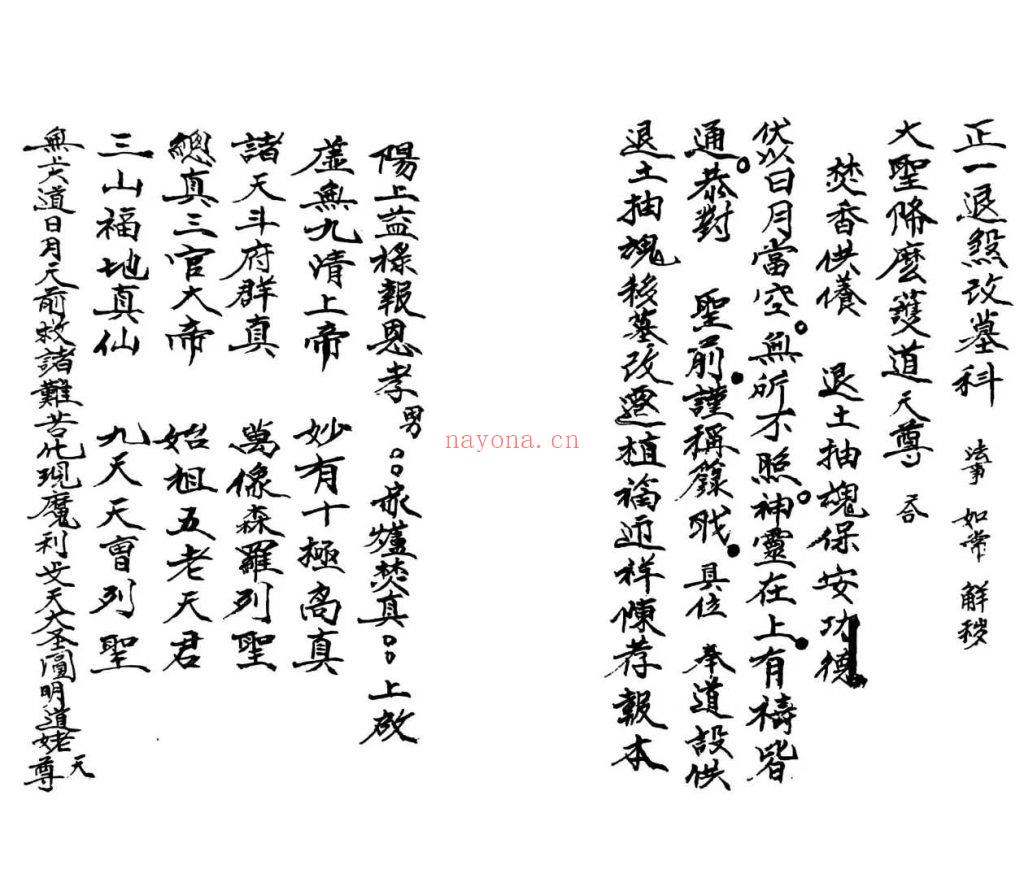 正一退煞改墓科 法事 如常 解穢
大聖降魔護道天尊
焚香供養 退土抽魂保安功德
伏以日月當空。無所不照。神靈在上。有禱皆
通。恭對 聖前。謹稱籙職。具位 奉道設供
退土抽魂移墓改遷植福迎祥悚荐報本
陽上益祿報恩孝男○○家爐焚真○○上啟
虛無九清上帝 妙有十極高真
諸天斗府群真 萬像森羅列聖
總真三官大帝 始祖五老天君
三山福地真仙 九天天曹列聖
無上道日月天前救諸難苦化現魔利支天大圣圓明道姥天尊
nayona.cn